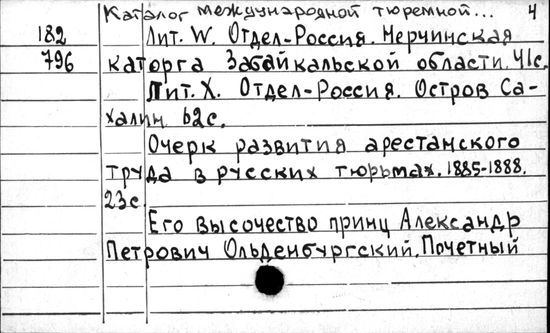 Каталог международной тюремной... 4
182 Лит. W. Отдел-Россия. Нерчинская
796 каторга Забайкальской области. 41с.
Лит. X. Отдел-Россия. Остров Са-
халин. 62с.
Очерк развития арестанского
труда в русских тюрьмах. 1885-1888.
23с.
Его высочество принц Александр
Петрович Ольденбургский. Почетный